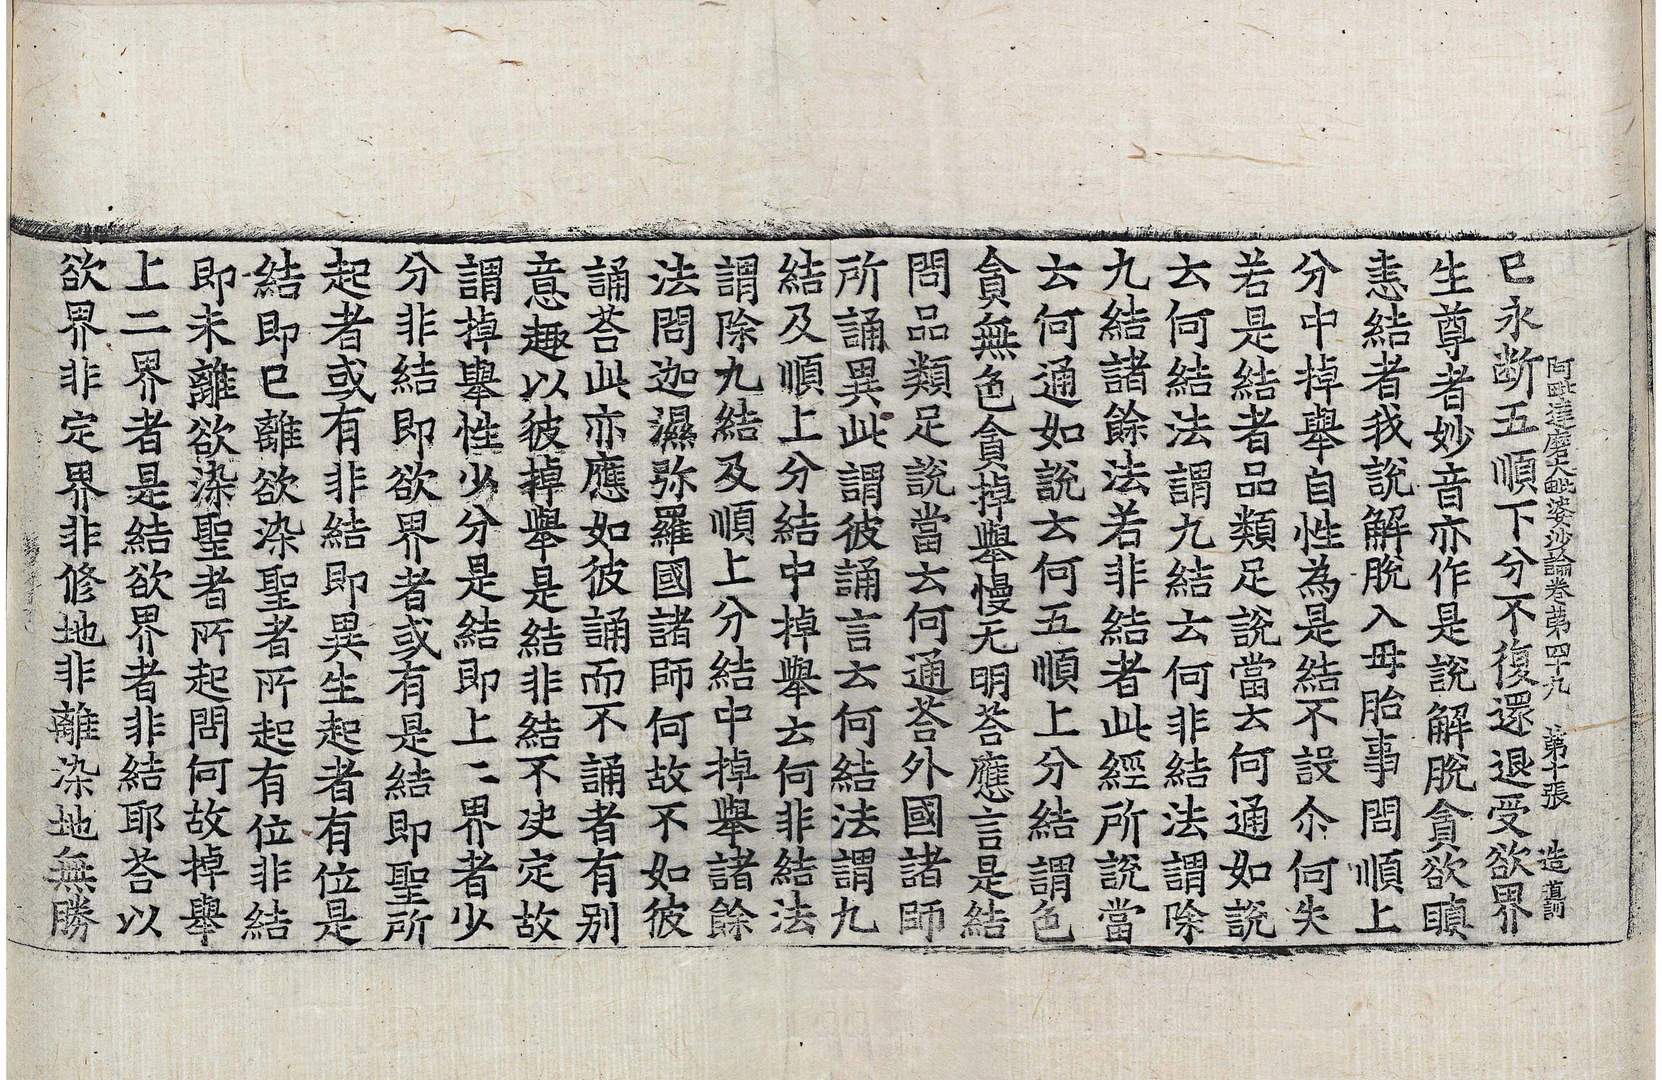 阿毗達磨大毗婆沙論卷苐四十九　苐十張　造
已永断五順下分不復還退受欲界
生尊者妙音亦作是說解脫貪欲瞋
恚結者我說解脫入毋胎事問順上
分中掉舉自性為是結不設尒何失
若是結者品類足說當去何通如說
去何結法謂九結去何非結法謂除
九結諸餘法若非結者此經所說當
去何通如說去何五順上分結謂色
貪無色貪掉舉慢无明荅應言是結
問品類足說當去何通荅外國諸師
所誦異此謂彼誦言去何結法謂九
結及順上分結中掉舉去何非結法
謂除九結及順上分結中掉舉諸餘
法問迦濕弥羅國諸師何故不如彼
誦荅此亦應如彼誦而不誦者有别
意趣以彼掉舉是結非結不决定故
謂掉舉性少分是結即上二界者少
分非結即欲界者或有是結即聖所
起者或有非結即異生起者有位是
結即已離欲染聖者所起有位非結
即未離欲染聖者所起問何故掉舉
上二界者是結欲界者非結耶荅以
欲界非定界非修地非離染地無勝